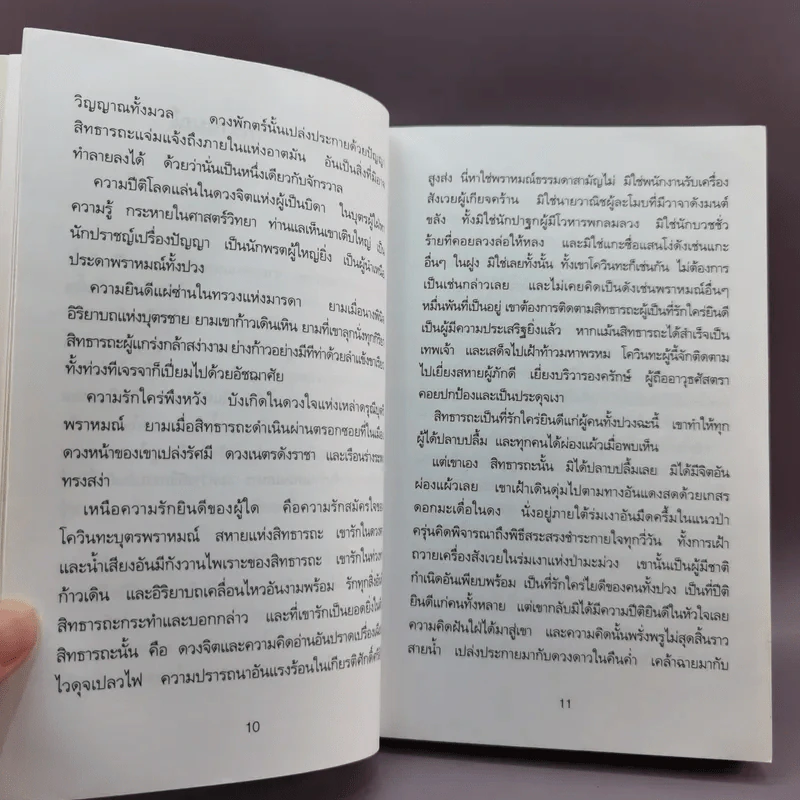 วิญญาณทั้งมวล ดวงพักตร์นั้นเปล่งประกายด้วยปัญญา
สิทธารถะแจ่มแจ้งถึงภายในแห่งอาตมัน อันเป็นสิ่งที่มิอาจ
ทำลายลงได้ ด้วยว่านั่นเป็นหนึ่งเดียวกับจักรวาล
ความปีติโลดแล่นในดวงจิตแห่งผู้เป็นบิดา ในบุตรผู้ใฝ่หา
ความรู้ กระหายในศาสตร์วิทยา ท่านแลเห็นเขาเติบใหญ่ เป็น
นักปราชญ์เปรื่องปัญญา เป็นนักพรตผู้ใหญ่ยิ่ง เป็นผู้นำเหนือ
ประดาพราหมณ์ทั้งปวง
ความยินดีแผ่ซ่านในทรวงแห่งมารดา ยามเมื่อนางพินิจ
อิริยาบถแห่งบุตรชาย ยามเขาก้าวเดินเหิน ยามที่เขาลุกนั่งทุกกิริยา
สิทธารถะผู้แกร่งกล้าสง่างาม ย่างก้าวอย่างมีทีท่าด้วยลำแข้งขาเรียว
ทั้งท่วงทีเจรจาก็เปี่ยมไปด้วยอัชฌาศัย
ความรักใคร่พึงหวัง บังเกิดในดวงใจแห่งเหล่าดรุณีบุตรี
พราหมณ์ ยามเมื่อสิทธารถะดำเนินผ่านตรอกซอยที่ในเมือง
ดวงหน้าของเขาเปล่งรัศมี ดวงเนตรดังราชา และเรือนร่างระหง
ทรงสง่า
เหนือความรักยินดีของผู้ใด คือความรักสมัครใจของ
โควินทะบุตรพราหมณ์ สหายแห่งสิทธารถะ เขารักในดวงตา
และน้ำเสียงอันมีกังวานไพเราะของสิทธารถะ เขารักในท่วงท่า
ก้าวเดิน และอิริยาบถเคลื่อนไหวอันงามพร้อม รักทุกสิ่งที่
สิทธารถะกระทำและบอกกล่าว และที่เขารักเป็นยอดยิ่งในตัว
สิทธารถะนั้น คือ ดวงจิตและความคิดอ่านอันปราดเปรื่อง
ไวดุจเปลวไฟ ความปรารถนาอันแรงร้อนในเกียรติศักดิ์
10
สูงส่ง นี่หาใช่พราหมณ์ธรรมดาสามัญไม่ มิใช่พนักงานรับเครื่อง
สังเวยผู้เกียจคร้าน มิใช่นายวาณิชผู้ละโมบที่มีวาจาดังมนต์
ขลัง ทั้งมิใช่นักปาฐกผู้มีโวหารพกลมลวง มิใช่นักบวชชั่ว
ร้ายที่คอยลวงล่อให้หลง และมิใช่แกะซื่อแสนโง่ดังเช่นแกะ
อื่นๆ ในฝูง มิใช่เลยทั้งนั้น ทั้งเขาโควินทะก็เช่นกัน ไม่ต้องการ
เป็นเช่นกล่าวเลย และไม่เคยคิดเป็นดังเช่นพราหมณ์อื่นๆ
หมื่นพันที่เป็นอยู่ เขาต้องการติดตามสิทธารถะผู้เป็นที่รักใคร่ยินดี
เป็นผู้มีความประเสริฐยิ่งแล้ว หากแม้นสิทธารถะได้สำเร็จเป็น
เทพเจ้า และเสด็จไปเฝ้าท้าวมหาพรหม โควินทะผู้นี้จักติดตาม
ไปเยี่ยงสหายผู้ภักดี เยี่ยงบริวารองครักษ์ ผู้ถืออาวุธศัสตรา
คอยปกป้องและเป็นประดุจเงา
สิทธารถะเป็นที่รักใคร่ยินดีแก่ผู้คนทั้งปวงฉะนี้ เขาทำให้ทุก
ผู้ได้ปลาบปลื้ม และทุกคนได้ผ่องแผ้วเมื่อพบเห็น
แต่เขาเอง สิทธารถะนั้น มิได้ปลาบปลื้มเลย มิได้มีจิตอัน
ผ่องแผ้วเลย เขาเฝ้าเดินดุ่มไปตามทางอันแดงสดด้วยเกสร
ดอกมะเดื่อในดง นั่งอยู่ภายใต้ร่มเงาอันมืดครึ้มในแนวป่า
ครุ่นคิดพิจารณาถึงพิธีสระสรงชำระกายใจทุกวี่วัน ทั้งการเฝ้า
ถวายเครื่องสังเวยในร่มเงาแห่งป่ามะม่วง เขานั้นเป็นผู้มีชาติ
กำเนิดอันเพียบพร้อม เป็นที่รักใคร่ไยดีของคนทั้งปวง เป็นที่ปีติ
ยินดีแก่คนทั้งหลาย แต่เขากลับมิได้มีความปีติยินดีในหัวใจเลย
ความคิดฝันใฝ่ได้มาสู่เขา และความคิดนั้นพรั่งพรูไม่สุดสิ้นราว
สายน้ำ เปล่งประกายมากับดวงดาวในคืนค่ำ เคล้าฉายมากับ
11